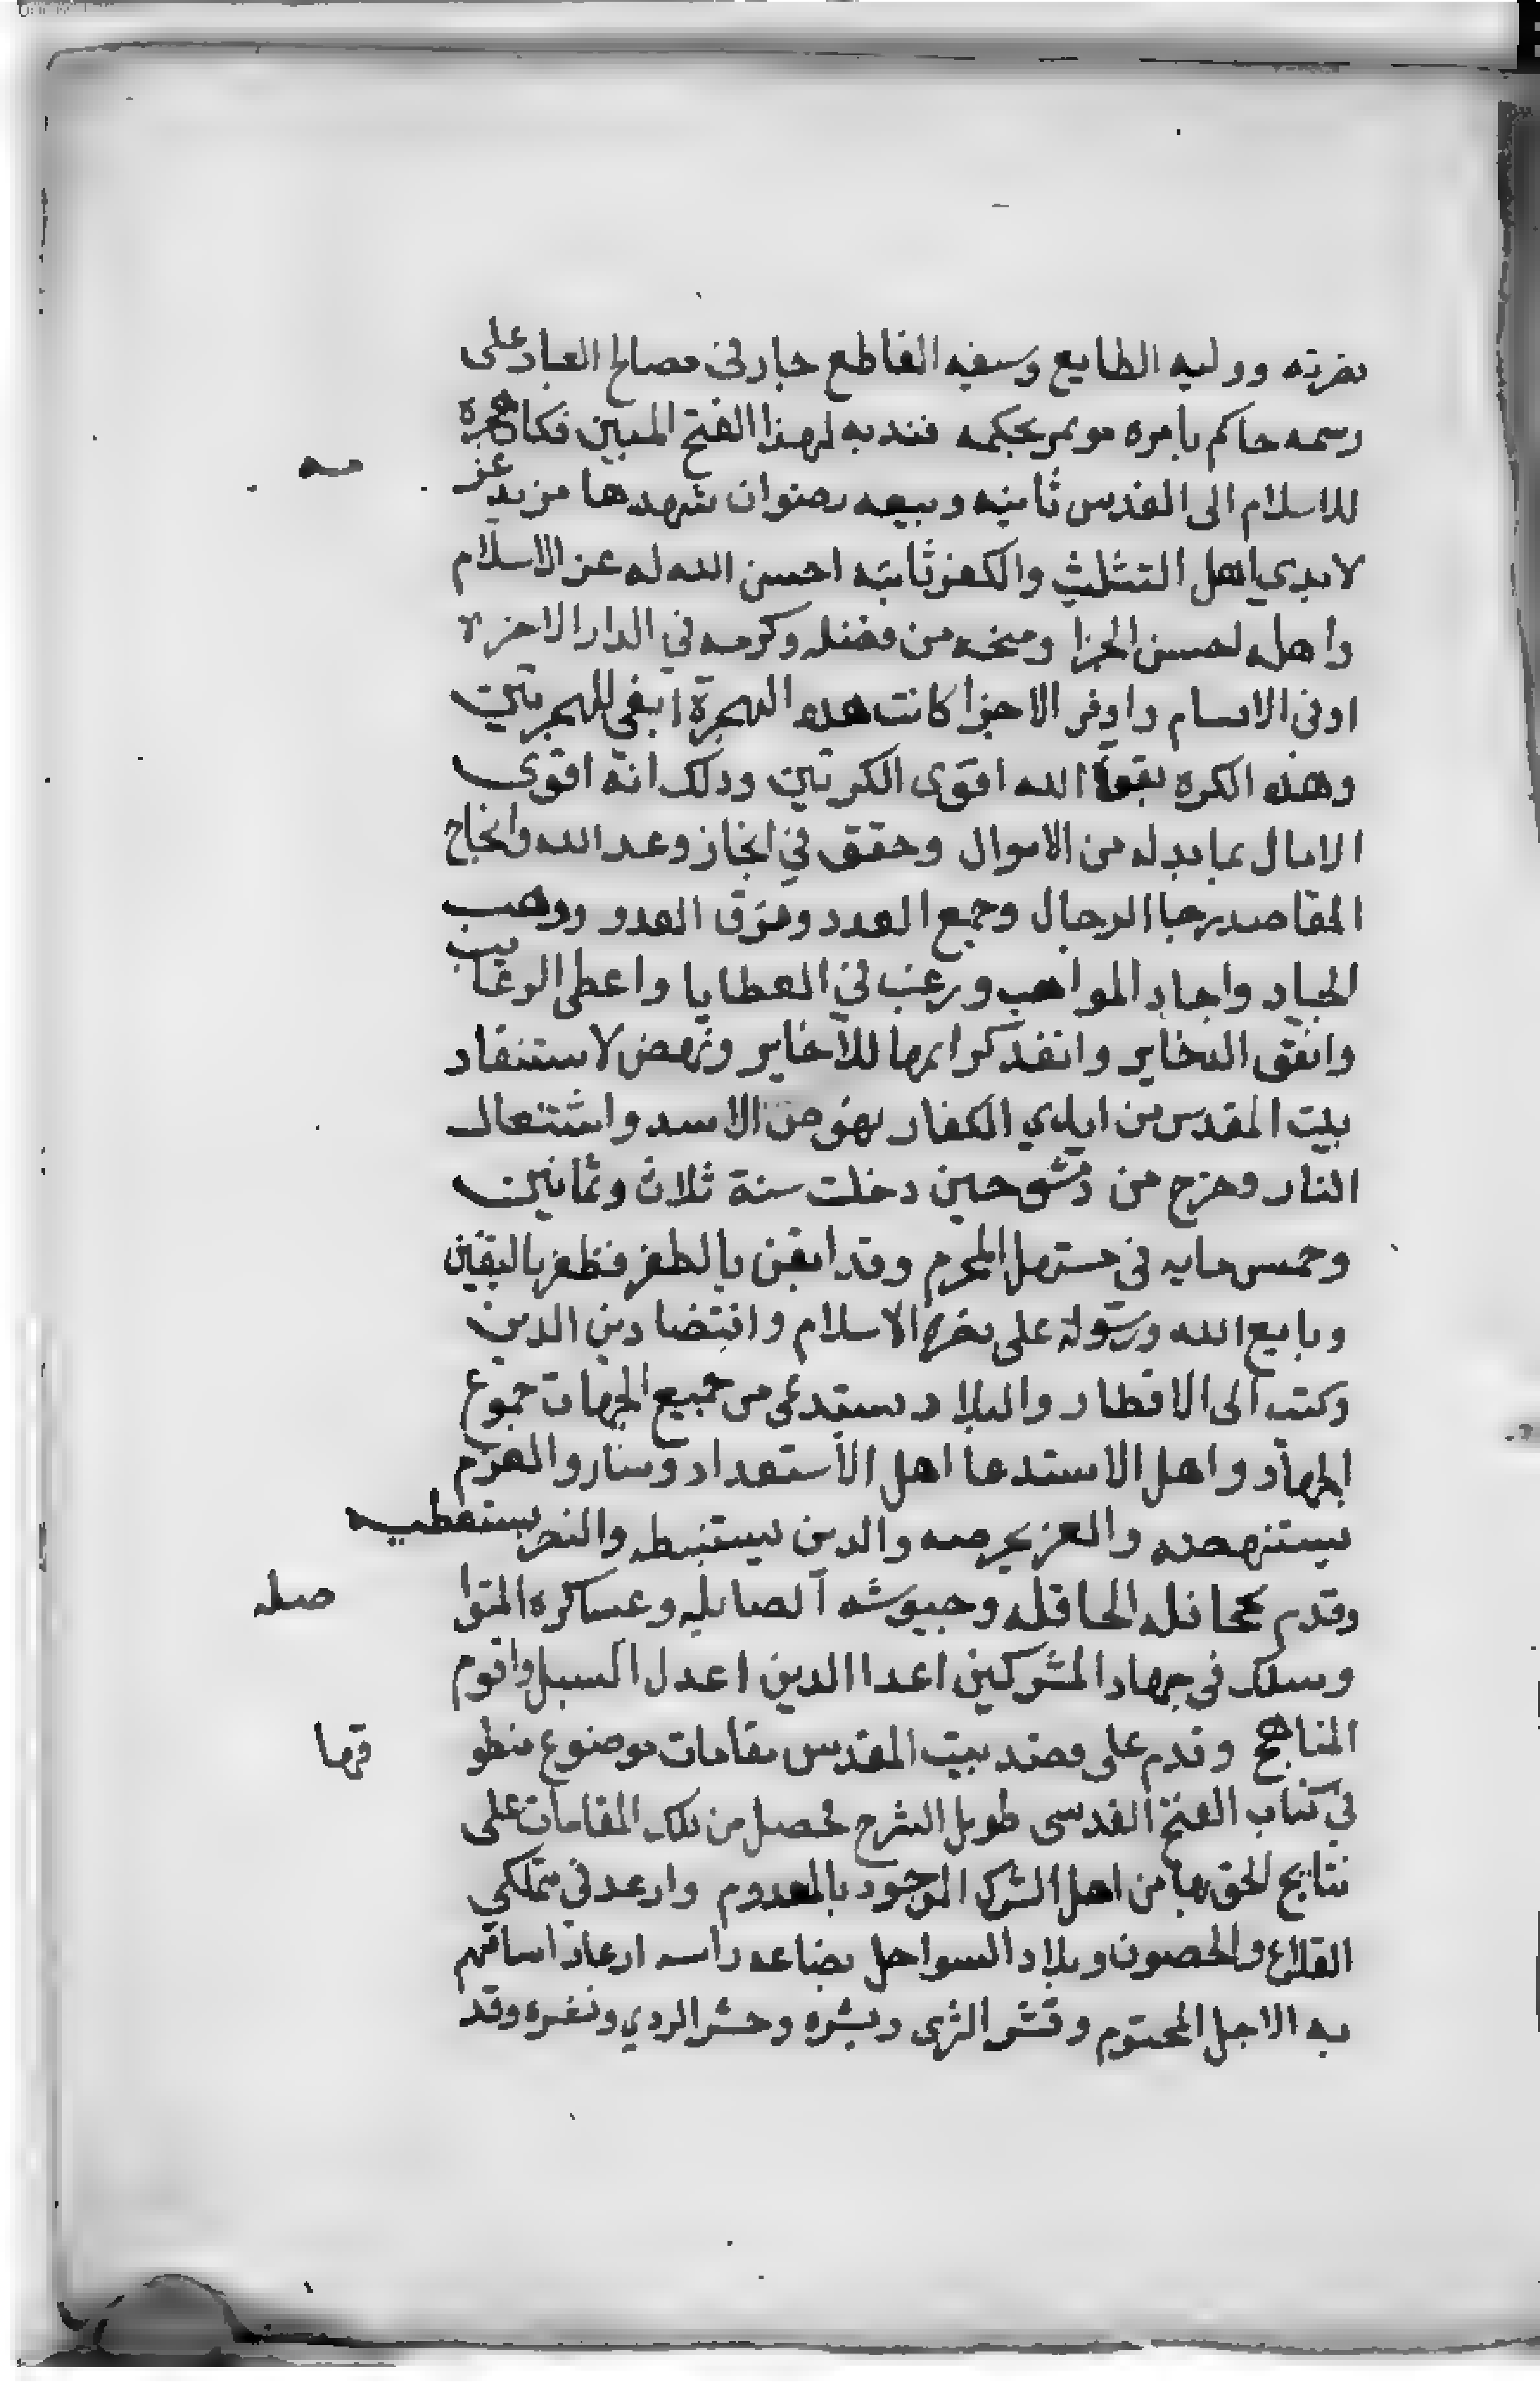 نصرته ووليه الطايع وسيفه القاطع جار في مصالح العباد على
رسمه حاكم بامره موتمر بحكمه فندبه لهذا الفتح المبين فكا هجرة
للاسلام الى القدس ثانيه وبيعه رضوان شهدها مزيد عز
مه
لا يدي اهل التثليث والكفر ثانيه احسن الله له عن الاسلام
واهله احسن الجزا ومنحه من فضله وكرمه في الدار الاخره
اوفى الاقسام واوفر الاجزا كانت هذه الهجرة ابقى الهجرتين
وهذه الكره بقوة الله اقوى الكرتين وذلك انه اقوى
الامال بما بذله من الاموال وحقق في انجاز وعد الله وانجاح
المقاصد رجا الرجال وجمع العدد وفرق العدو ووهب
الجياد واجاد المواهب ورغب في العطايا واعطى الرغايب
وانفق الذخاير وانفد كرايمها للاخاير ونهض لاستنقاد
بيت المقدس من ايدي الكفار نهوض الاسد واشتعال
النار وخرج من دمشق حين دخلت سنة ثلاث وثمانين
وخمس مايه في مستهل المحرم وقد ايقن بالظفر فظفر باليقين
وبايع الله ورسوله على نصرة الاسلام وانتضا دين الدين
وكتب الى الاقطار والبلاد يستدعي من جميع الجهات جموع
الجهاد واهل الاستدعا اهل الاستعداد وسار والعزم
يستنهضه والعز يحرضه والدين يستبسطه والنصر يستعطيه
وقدم بجحافله الحافله وجيوشه الصايله وعساكره المتوا
صله
وسلك في جهاد المشركين اعدا الدين اعدل السبل واقوم
المناهج وقدم على قصد بيت المقدس مقامات موضوع منطو
قها
في كتاب الفتح القدسي طويل الشرح تحصل من تلك المقامات على
نتايج لحق بها من اهل الشرك الموجود بالمعدوم وارعد في متملكي
القلاع والحصون وبلاد السواحل بضاعه راسه ارعاد اساقهم
به الاجل المحتوم وقشر الثرى وبشره وحشر الردي ونشره وقد